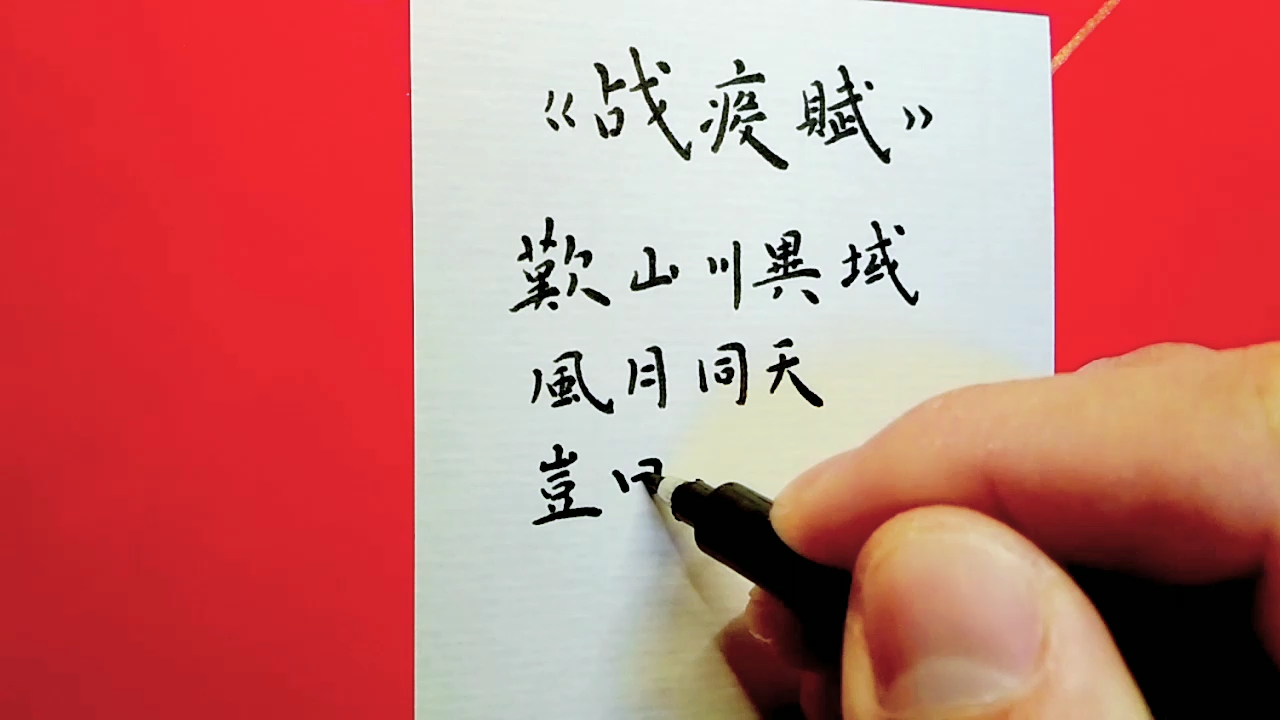 《战疫賦》
歎山川異域
風月同天
豈